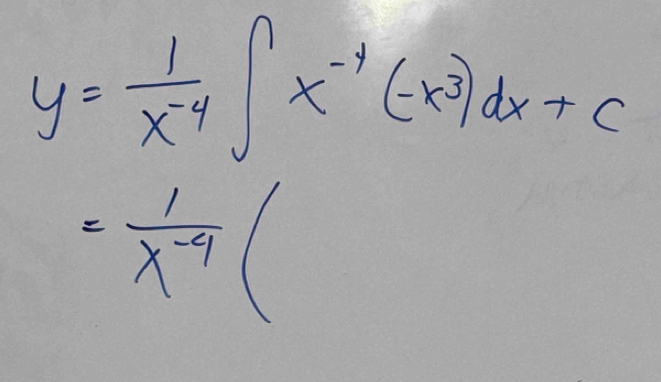 y = 1/x⁻⁴ ∫ x⁻⁴ (-x³) dx + c
= 1/x⁻⁴ (